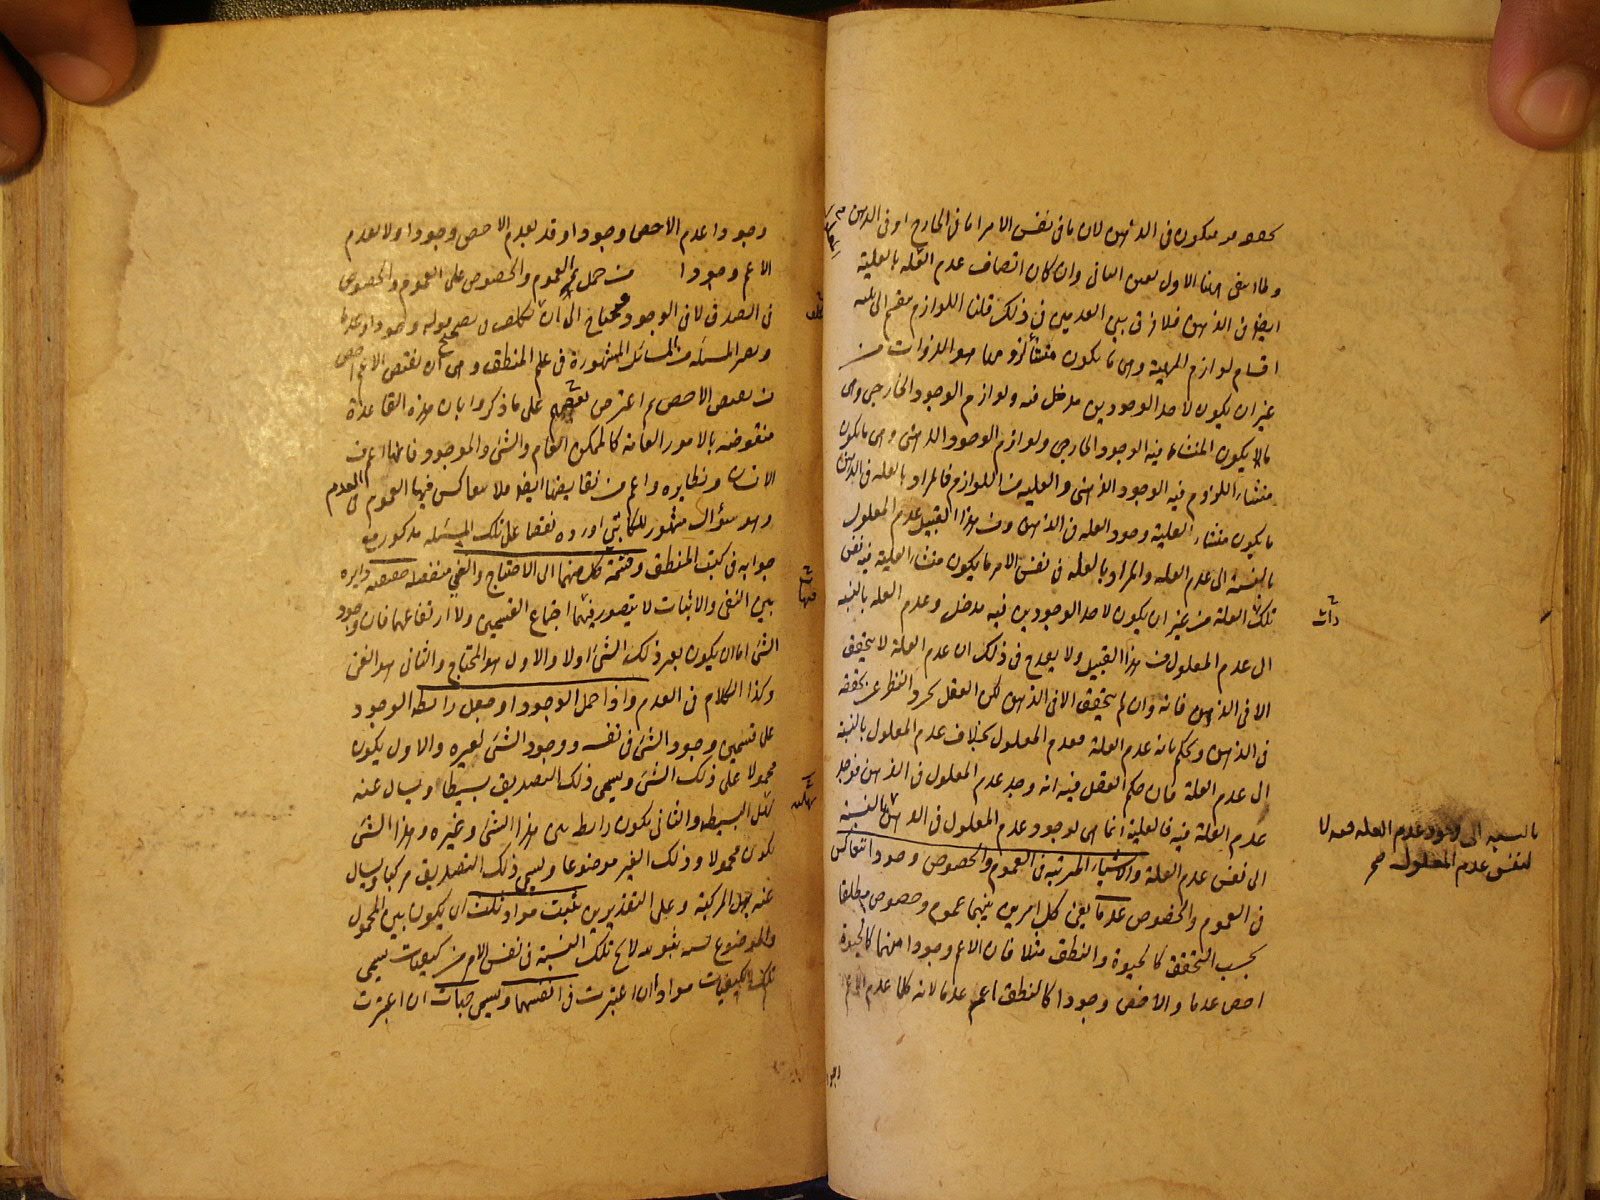 فيكون في الذهن لان ما في نفس الامر اما في الخارج او في الذهن
ولما انتفى الاول تعين الثاني وان كان اتصاف عدم العلة بالعلية
ايضا في الذهن فلا فرق بين العدمين في ذلك قلنا اللوازم منقسم الى ثلثة
اقسام لوازم المهية وهي ما يكون منشأ لزومها هو الذوات من
غير ان يكون لاحد الوجودين مدخل فيه ولوازم الوجود الخارجي وهي
ما لا يكون المنشاء فيه الوجود الخارجي ولوازم الوجود الذهني وهي ما يكون
منشاء اللزوم فيه الوجود الذهني والعلية من اللوازم فالمراد بالعلة في الذهن
ما يكون منشاء العلية وجود العلة في الذهن ومن هذا القبيل عدم المعلول
بالنسبة الى عدم العلة والمراد بالعلة في نفس الامر ما يكون منشاء العلية فيه نفس
تلك العلة من غير ان يكون لاحد الوجودين فيه مدخل وعدم العلة بالنسبة
الى عدم المعلول من هذا القبيل ولا يقدح في ذلك ان عدم العلة لا يتحقق
الا في الذهن فانه وان لم يتحقق الا في الذهن لكن العقل يجرد النظر عن تحققه
في الذهن ويحكم بانه عدم العلة فعدم المعلول بخلاف عدم المعلول بالنسبة
الى عدم العلة فان حكم العقل فيه انه وجد عدم المعلول في الذهن فوجد
عدم العلة فيه فالعلية انما هي لوجود عدم المعلول في الذهن بالنسبة
الى نفس عدم العلة والاشياء المرتبة في العموم والخصوص وجودا تتعاكس
في العموم والخصوص عدما يعني كل امرين بينهما عموم وخصوص مطلقا
بحسب التحقق كالحيوة والنطق مثلا فان الاعم وجودا منهما كالحيوة
اخص عدما والاخص وجودا كالنطق اعم عدما لانه كلما عدم الاعم
بالنسبة الى وجود عدم العلة فيه لا
لنفس عدم المعلول صح
وجودا عدم الاخص وجودا وقد يعدم الاخص وجودا ولا يعدم
الاعم وجودا من حمل العموم والخصوص على العموم والخصوص
في الصدق لا في الوجود محتاج الى ان تكلف في تصحيح قوله وجودا وعدما
وهذه المسئلة من المسائل المشهورة في علم المنطق وهي ان نقيض الاعم اخص
من نقيض الاخص ثم اعترض بعضهم على ما ذكروا بان هذه القاعدة
منقوضة بالامور العامة كالممكن العام والشئ والموجود فانها اعم من
الانسان ونظايره واعم من نقايضها ايضا فلا تعاكس فيها العموم في العدم
وهو سؤال مشهور للكاتبي اورده نقضا على تلك المسئلة مذكور مع
جوابه في كتب المنطق وقسمة كل منهما الى الاحتياج والغني منفصلة حقيقية دايره
بين النفي والاثبات لا يتصور فيهما اجتماع القسمين ولا ارتفاعهما فان وجود
الشئ اما ان يكون بعد ذلك الشئ اولا والاول هو المحتاج والثاني هو الغني
وكذا الكلام في العدم واذا حمل الوجود او جعل رابطة الوجود
على قسمين وجود الشئ في نفسه ووجود الشئ لغيره والاول يكون
محمولا على ذلك الشئ ويسمى ذلك التصديق بسيطا ويسال عنه
بهل البسيطة والثاني يكون رابطة بين هذا الشئ وغيره وهذا الشئ
يكون محمولا وذلك الغير موضوعا ويسمى ذلك التصديق مركبا ويسال
عنه بهل المركبة وعلى التقديرين تثبت مواد ثلث ان يكون بين المحمول
والموضوع نسبة ثبوتية لا يخ تلك النسبة في نفس الامر من كيفيات يسمى
تلك الكيفيات موادا ان اعتبرت في انفسها ويسمى جهات ان اعتبرت